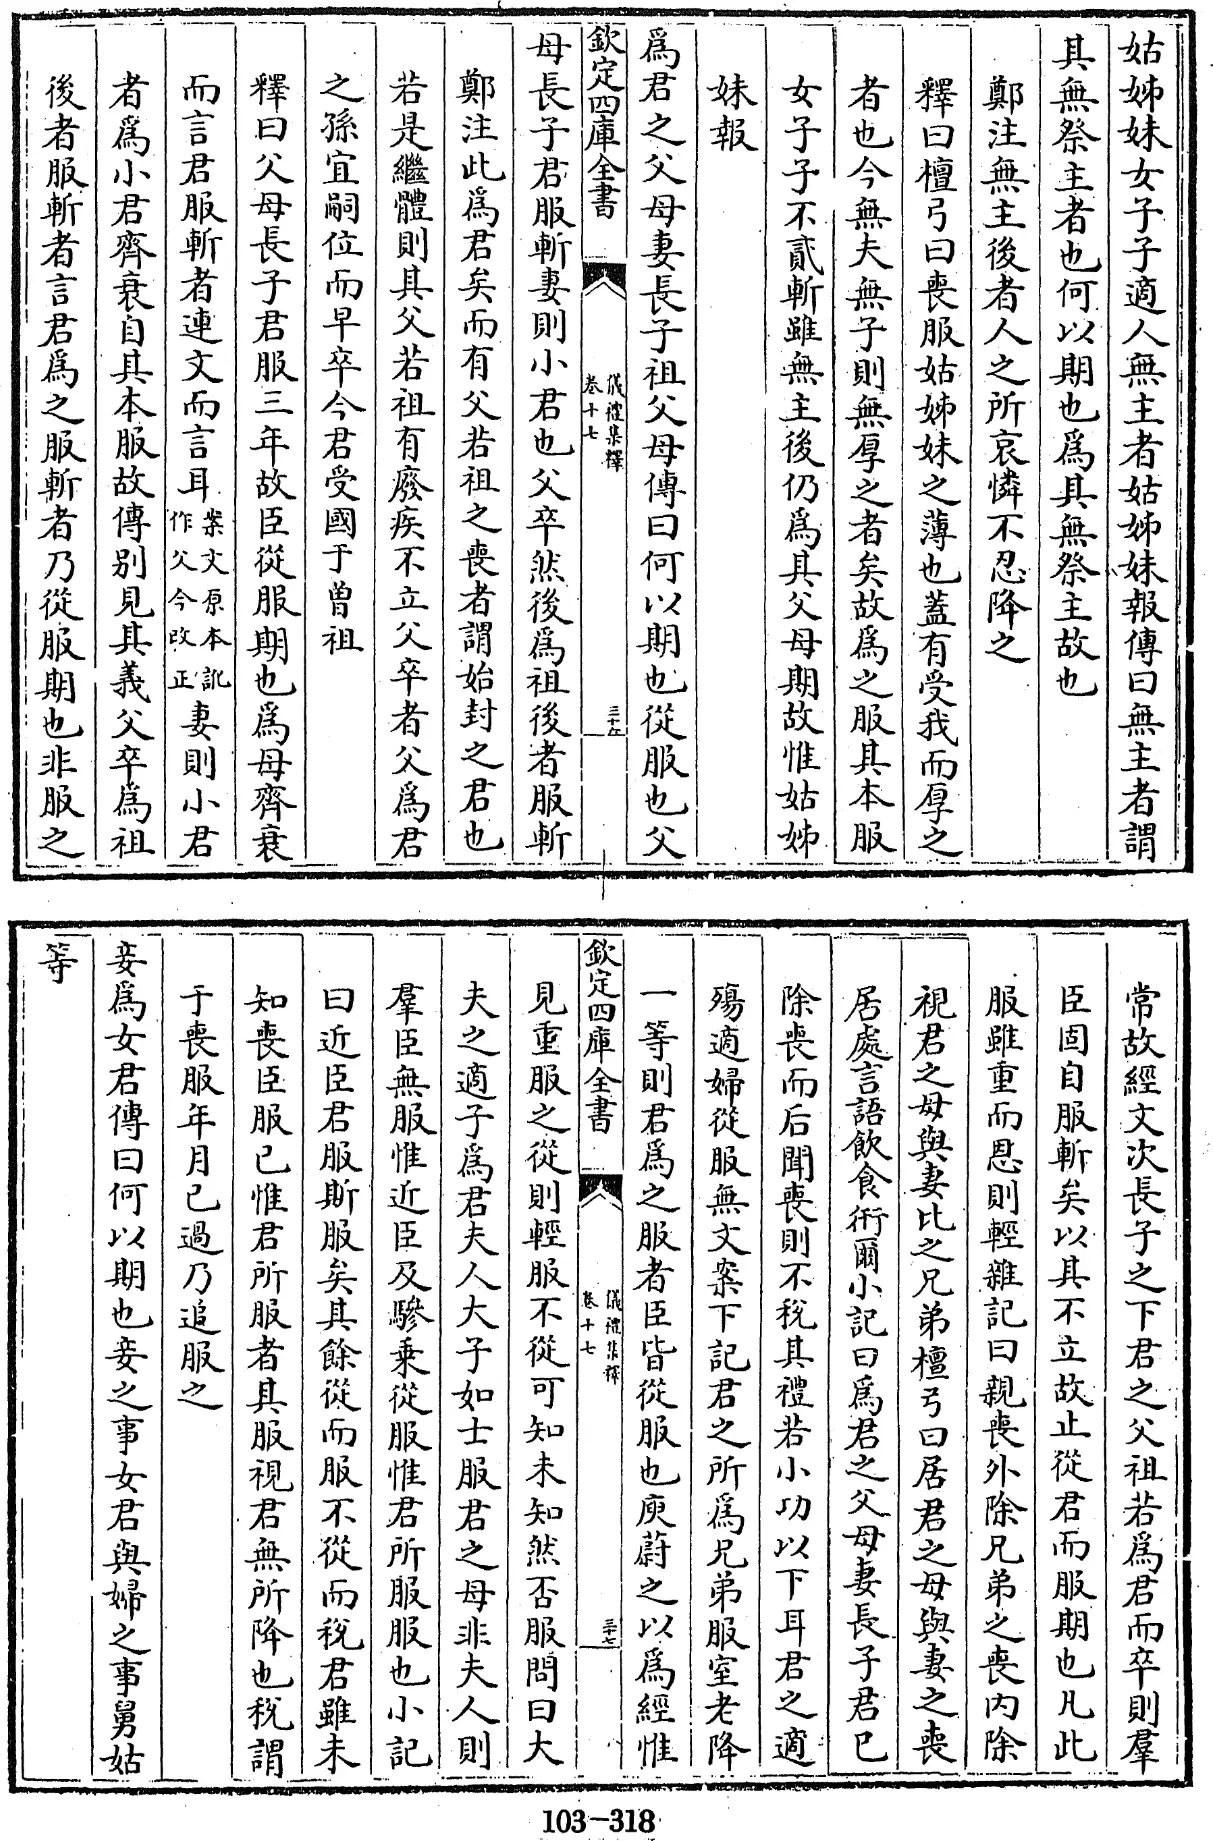 姑姊妹女子子適人無主者姑姊妹報傳曰無主者謂
其無祭主者也何以期也爲其無祭主故也
鄭注無主後者人之所哀憐不忍降之
釋曰檀弓曰喪服姑姊妹之薄也蓋有受我而厚之
者也今無夫無子則無厚之者矣故爲之服其本服
女子子不貳斬雖無主後仍爲其父母期故惟姑姊
妹報
爲君之父母妻長子祖父母傳曰何以期也從服也父
欽定四庫全書
儀禮集釋
卷十七
母長子君服斬妻則小君也父卒然後爲祖後者服斬
鄭注此爲君矣而有父若祖之喪者謂始封之君也
若是繼體則其父若祖有廢疾不立父卒者父爲君
之孫宜嗣位而早卒今君受國于曾祖
釋曰父母長子君服三年故臣從服期也爲母齊衰
而言君服斬者連文而言耳案文原本訛作父今改正妻則小君
者爲小君齊衰自其本服故傳别見其義父卒爲祖
後者服斬者言君爲之服斬者乃從服期也非服之
常故經文次長子之下君之父祖若爲君而卒則羣
臣固自服斬矣以其不立故止從君而服期也凡此
服雖重而恩則輕雜記曰親喪外除兄弟之喪内除
視君之母與妻比之兄弟檀弓曰居君之母與妻之喪
居處言語飲食衎爾小記曰爲君之父母妻長子君已
除喪而后聞喪則不税其禮若小功以下耳君之適
殤適婦從服無文案下記君之所爲兄弟服室老降
一等則君爲之服者臣皆從服也庾蔚之以爲經惟
欽定四庫全書
儀禮集釋
卷十七
三十七
見重服之從則輕服不從可知未知然否服問曰大
夫之適子爲君夫人大子如士服君之母非夫人則
羣臣無服惟近臣及驂乗從服惟君所服服也小記
曰近臣君服斯服矣其餘從而服不從而税君雖未
知喪臣服已惟君所服者其服視君無所降也税謂
于喪服年月已過乃追服之
妾爲女君傳曰何以期也妾之事女君與婦之事舅姑
等
103-318